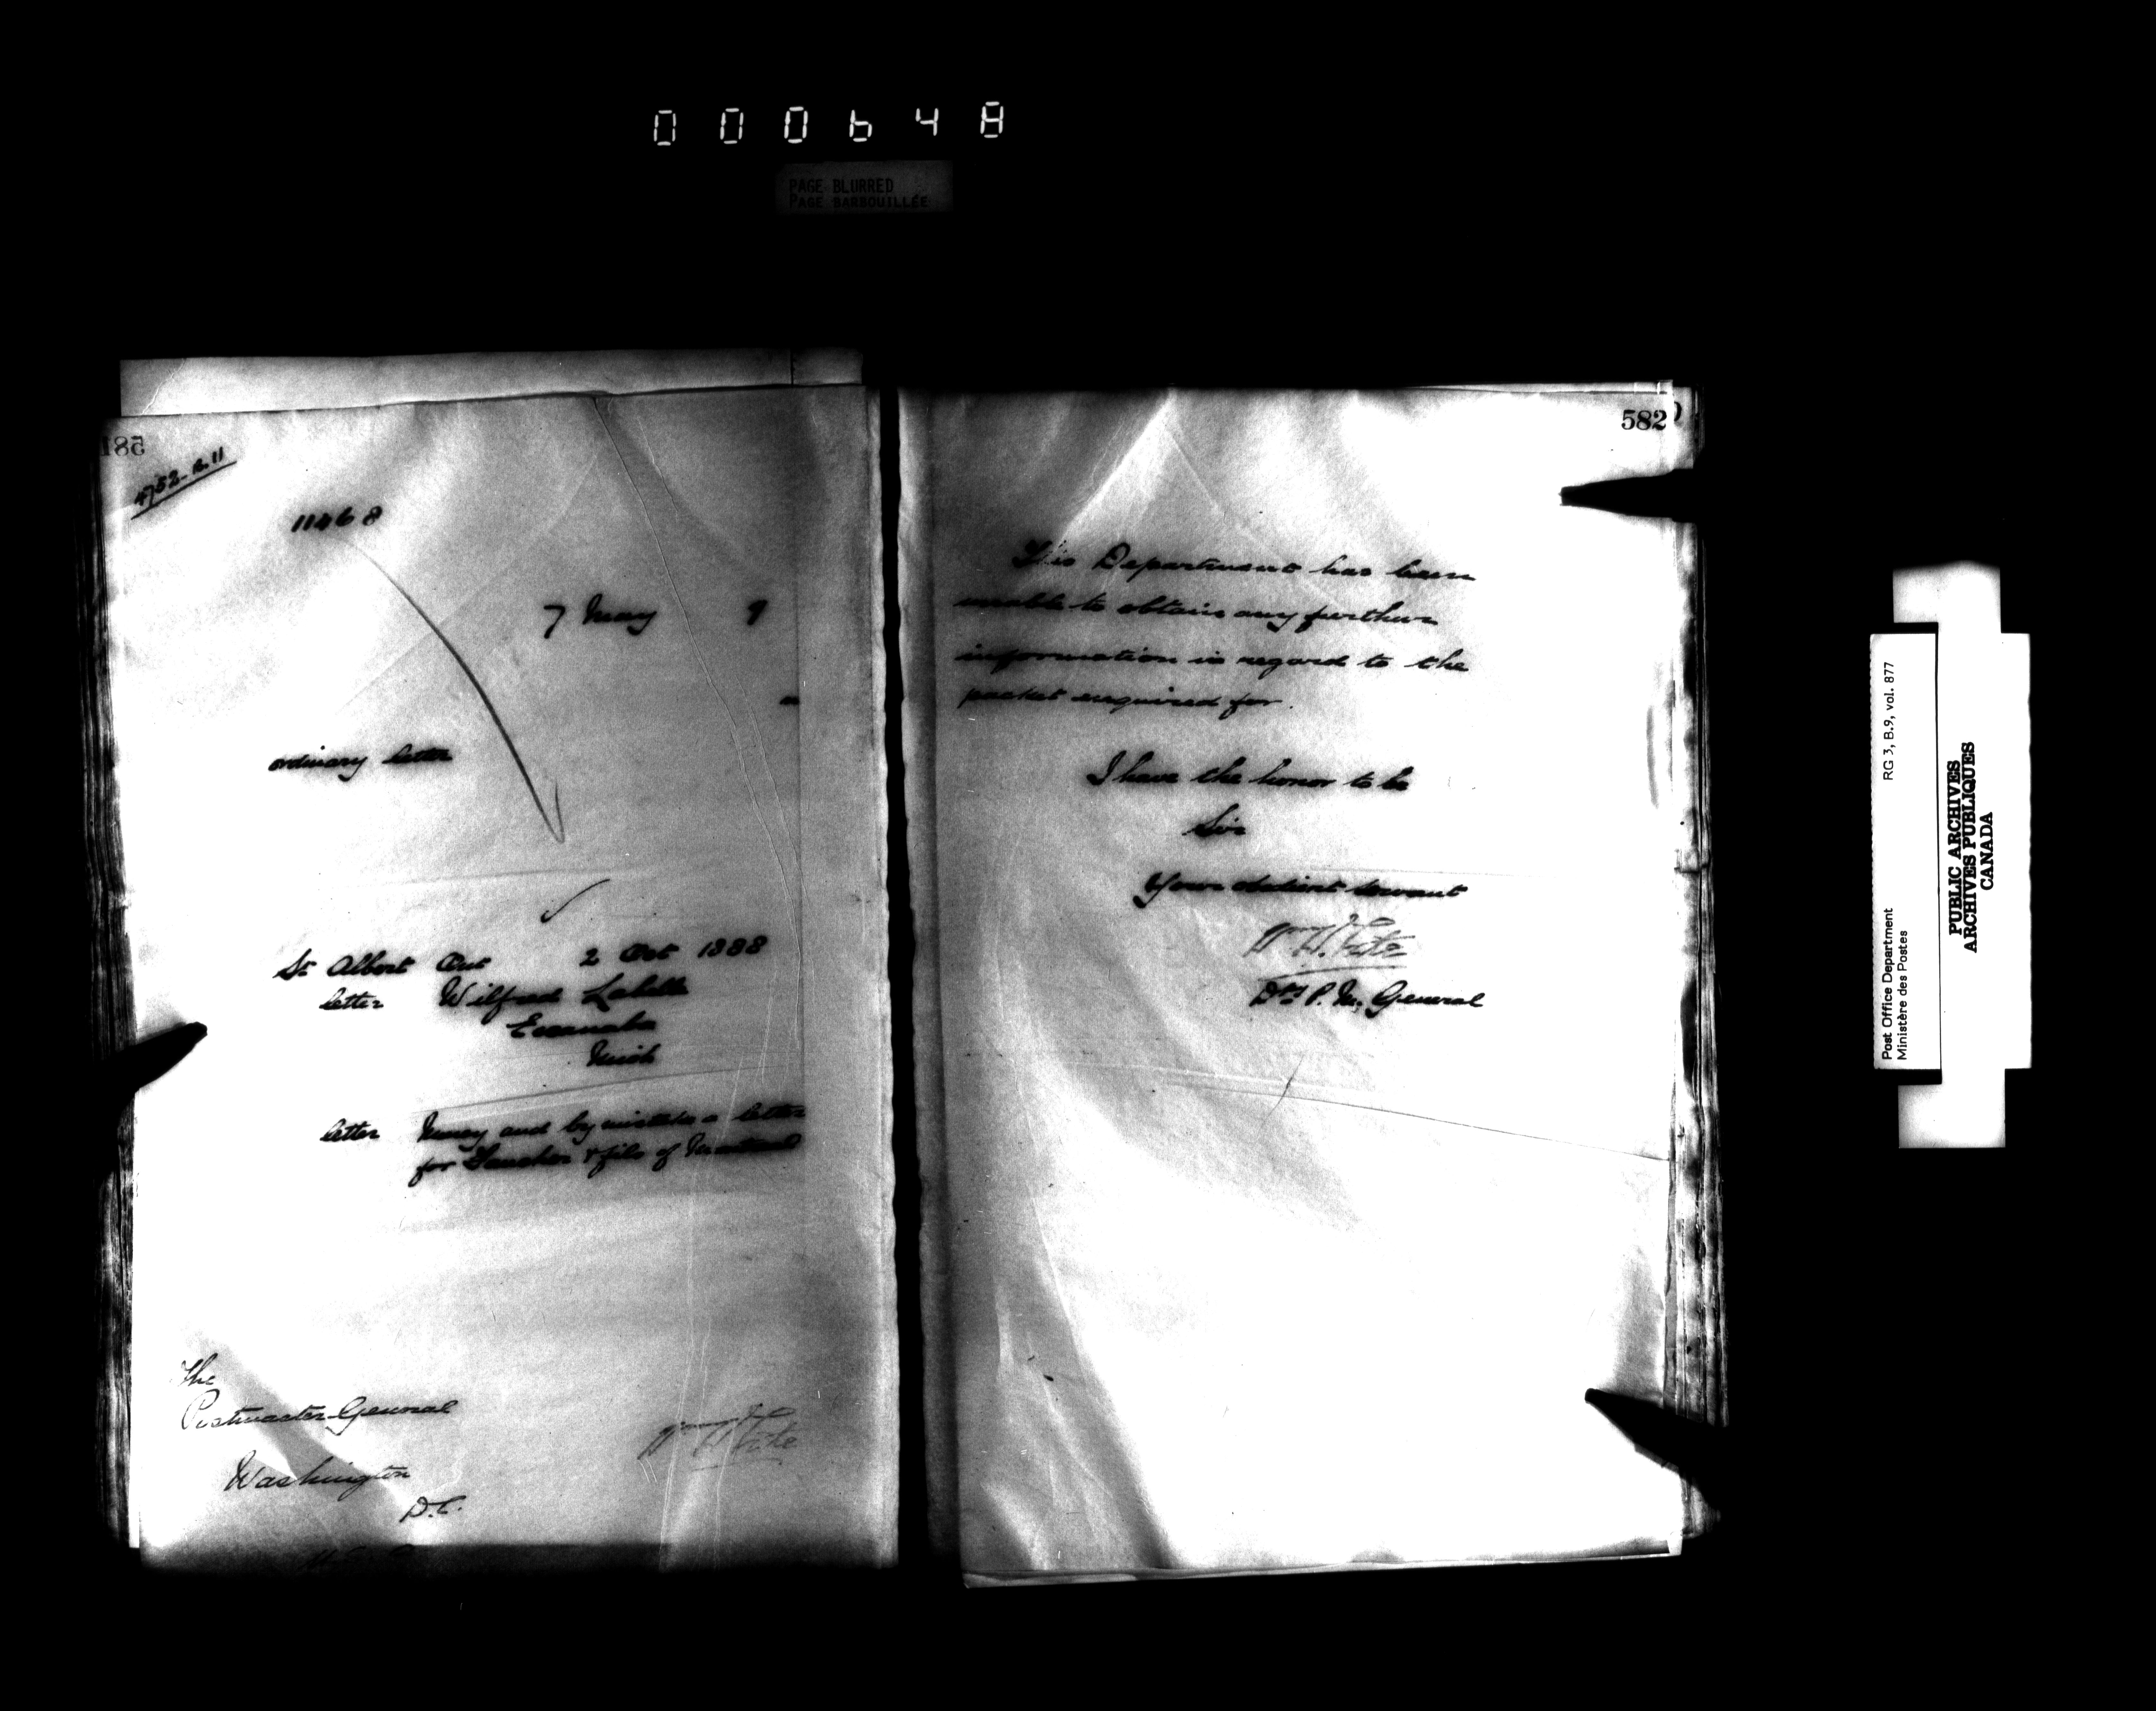 000648
PAGE BLURRED
PAGE BARBOUILLÉE
581
4752-B.11
11468
7 May 9
ordinary letter
St Albert Ont 2 Oct 1888
letter Wilfred Labelle
Escanaba
Mich
letter Money and by mistake a letter
for & fils of Montreal
The
Postmaster General
Washington
D.C.
582
This Department has been
unable to obtain any further
information in regard to the
packet enquired for.
I have the honor to be
Sir
Your obedient servant
Dpy P. M. General
Post Office Department
Ministère des Postes
RG 3, B.9, vol. 877
PUBLIC ARCHIVES
ARCHIVES PUBLIQUES
CANADA